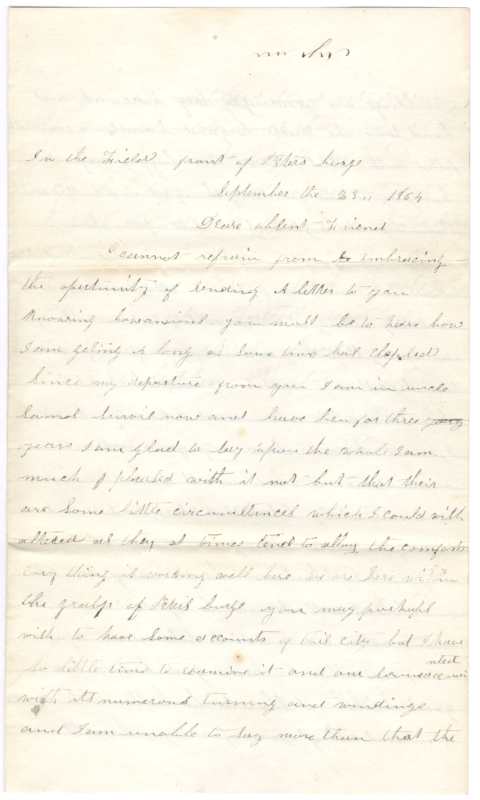 In the Field front of Peters burge
September the 23,, 1864
Deare absent Friend
I cannot refrain from to embracing
the opertunity of sending A letter to you
Knowing how anxious you must be to hear how
I am geting A long as Some time has elapsed
Since my departure from you I am in uncle
Sames survis now and have ben for three
years I am glad to say upon the whole I am
much pleased with it not but that their
are Some little circumstances which I could wish
altered as they at times tend to allay the comforts
evry thing is working well here we are here within
the grasps of Peters burge you may perhaps
wish to have Some accounts of this city but I have
So little time to examine it and am
with its numerous turning and windings
and I am unable to say more than that the